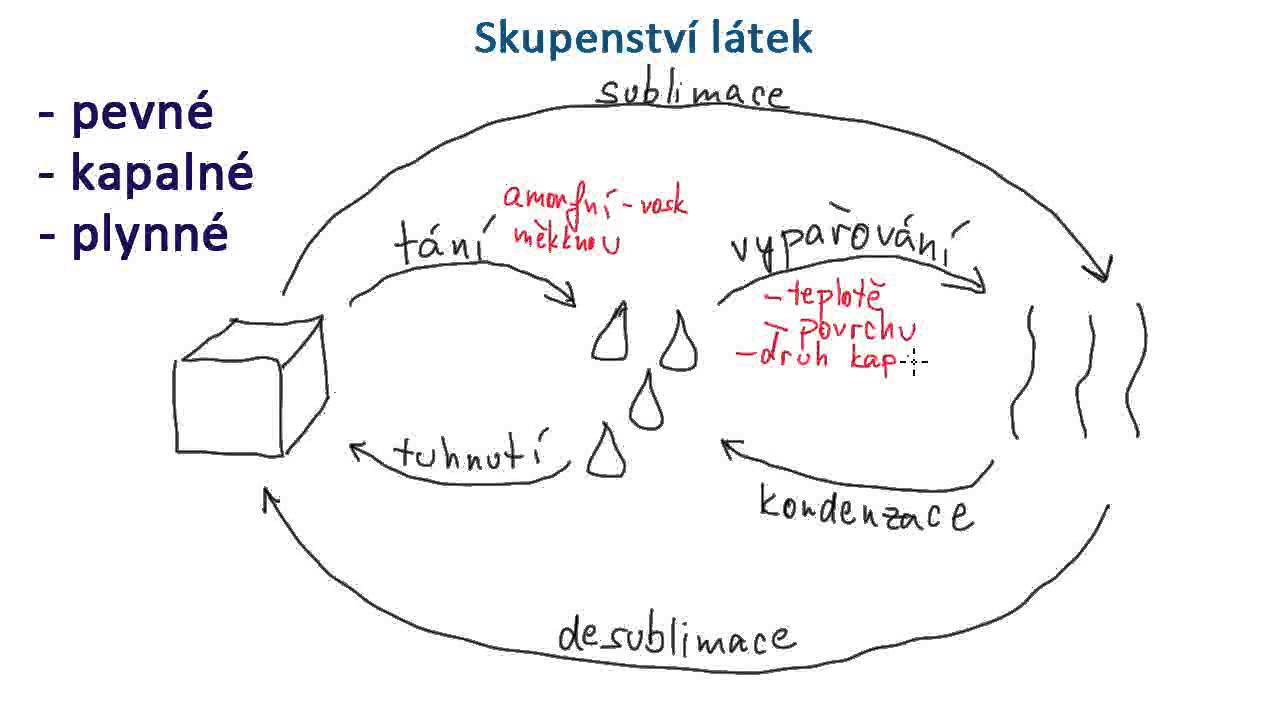 Skupenství látek
- pevné
- kapalné
- plynné
sublimace
tání
amorfní - vosk
měknou
vypařování
- teplotě
- povrchu
- druh kap
tuhnutí
kondenzace
desublimace